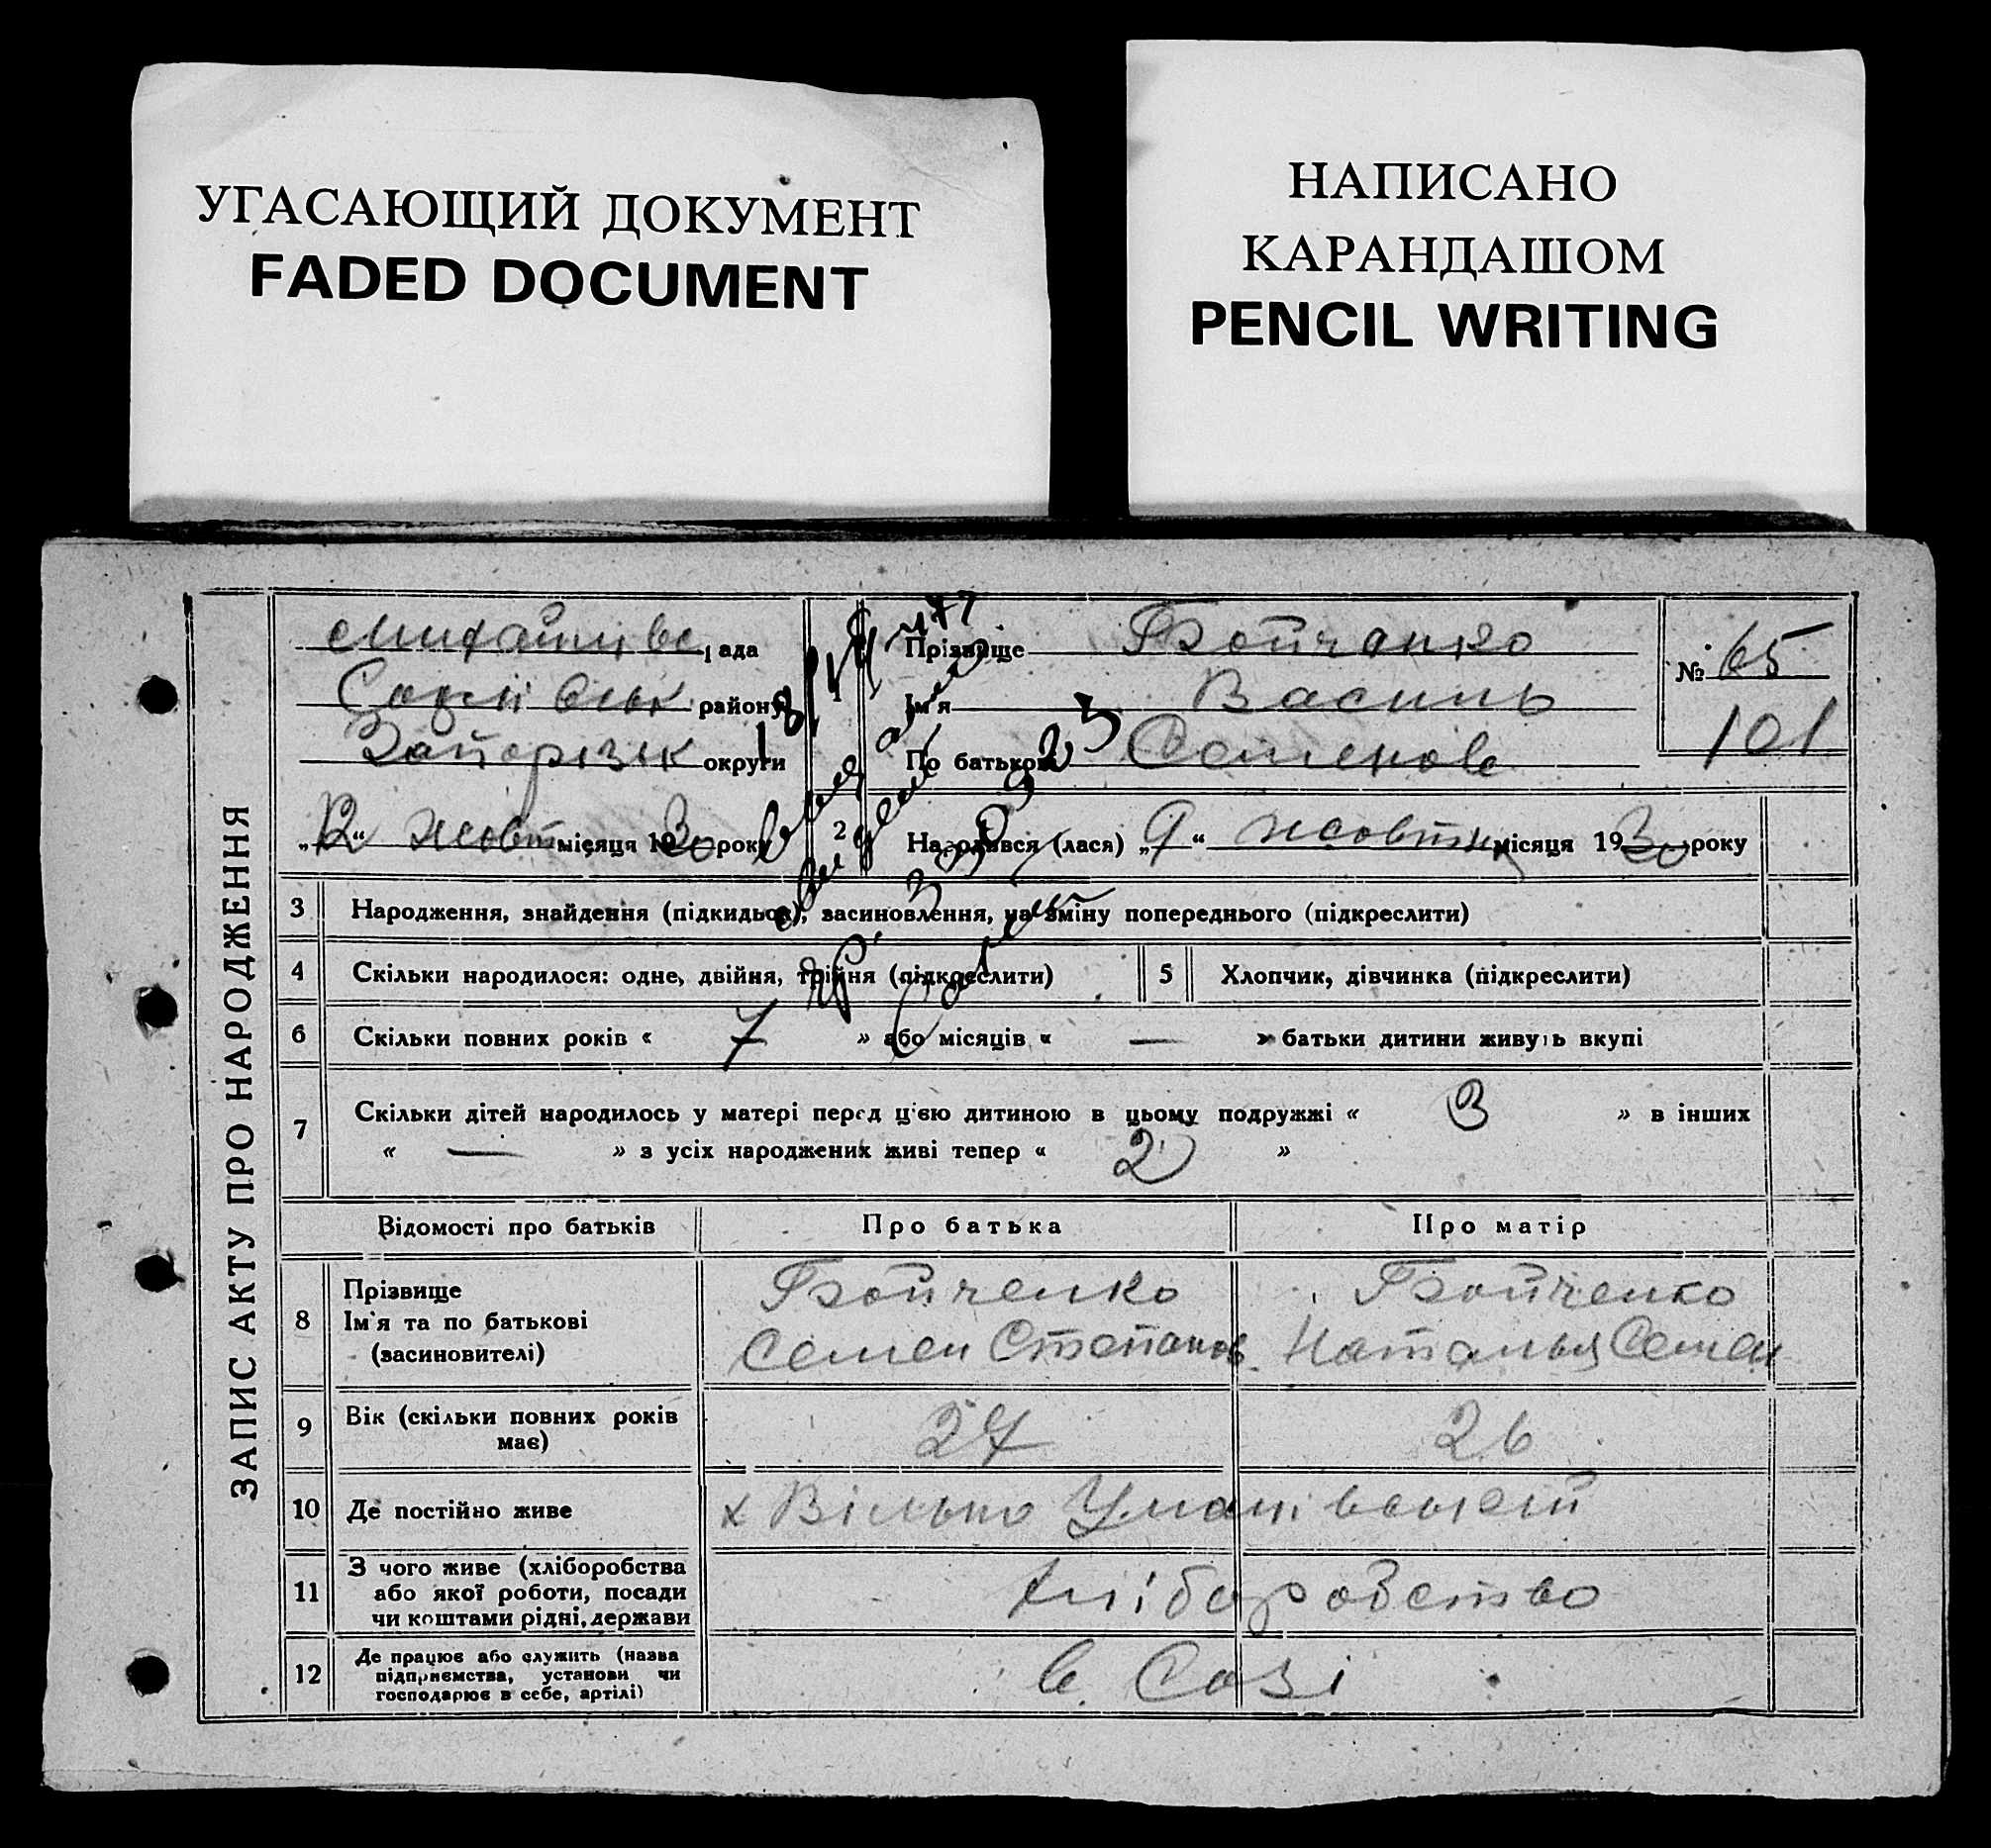 УГАСАЮЩИЙ ДОКУМЕНТ
FADED DOCUMENT
НАПИСАНО
КАРАНДАШОМ
PENCIL WRITING
ЗАПИС АКТУ ПРО НАРОДЖЕННЯ
рада
району
Запорізк округи
„12“ жовт місяця 1930 року
Прізвище Бойченко
Ім'я Василь
По батькові Семенов
№ 65
101
2 Народився (лася) „9“ жовтня місяця 1930 року
3 Народження, знайдення (підкидьок), засиновлення, на зміну попереднього (підкреслити)
4 Скільки народилося: одне, двійня, трійня (підкреслити)
5 Хлопчик, дівчинка (підкреслити)
6 Скільки повних років « 7 » або місяців « — » батьки дитини живуть вкупі
7 Скільки дітей народилось у матері перед ц'єю дитиною в цьому подружжі « 3 » в інших
« — » з усіх народжених живі тепер « 2 »
Відомості про батьків Про батька Про матір
8 Прізвище
Ім'я та по батькові
(засиновителі)
Бойченко
Семен Степанов
Бойченко
Наталья Семен
9 Вік (скільки повних років
має)
27 26
10 Де постійно живе х Вільно
11 З чого живе (хліборобства
або якої роботи, посади
чи коштами рідні, держави
хліборобство
12 Де працює або служить (назва
підприємства, установи чи
господарює в себе, артілі)
в Созі